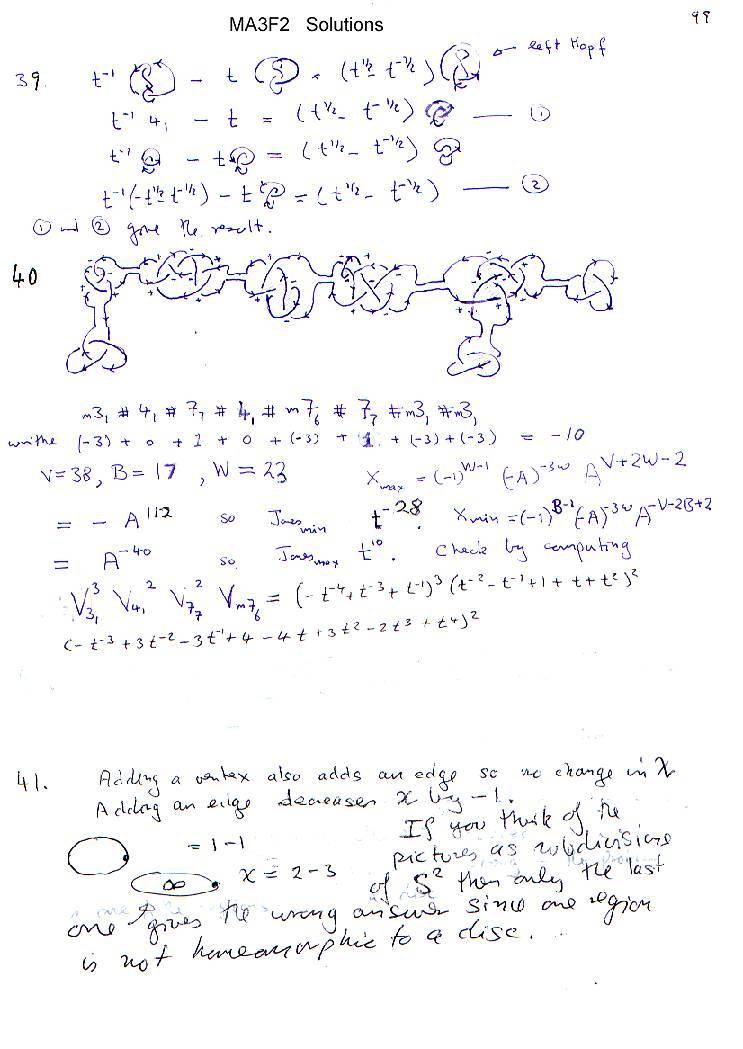 MA3F2 Solutions
99
39. t⁻¹ − t = (t^½ − t^−½) left Hopf
t⁻¹ 4₁ − t = (t^½ − t^−½) — ①
t⁻¹ − t = (t^½ − t^−½)
t⁻¹(−t^½ − t^−½) − t = (t^½ − t^−½) — ②
① and ② give the result.
40
m3₁ # 4₁ # 7₇ # 4₁ # m7₆ # 7₇ # m3₁ # m3₁
writhe (-3) + 0 + 1 + 0 + (-3) + 1 + (-3) + (-3) = -10
V=38, B=17, W=23 X_max = (-1)^{W-1} (-A)^{-3w} A^{V+2W-2}
= − A^{112} so Jones_min t^{-28}. X_min = (-1)^{B-1} (-A)^{-3w} A^{-V-2B+2}
= A^{-40} so Jones_max t^{10}. Check by computing
V³_{3₁} V²_{4₁} V²_{7₇} V_{m7₆} = (-t⁻⁴ + t⁻³ + t⁻¹)³ (t⁻² − t⁻¹ + 1 + t + t²)²
(-t⁻³ + 3t⁻² − 3t⁻¹ + 4 − 4t + 3t² − 2t³ + t⁴)²
41. Adding a vertex also adds an edge so no change in χ
Adding an edge decreases χ by -1.
= 1-1
∞ χ = 2-3
If you think of the
pictures as subdivisions
of S² then only the last
one gives the wrong answer since one region
is not homeomorphic to a disc.